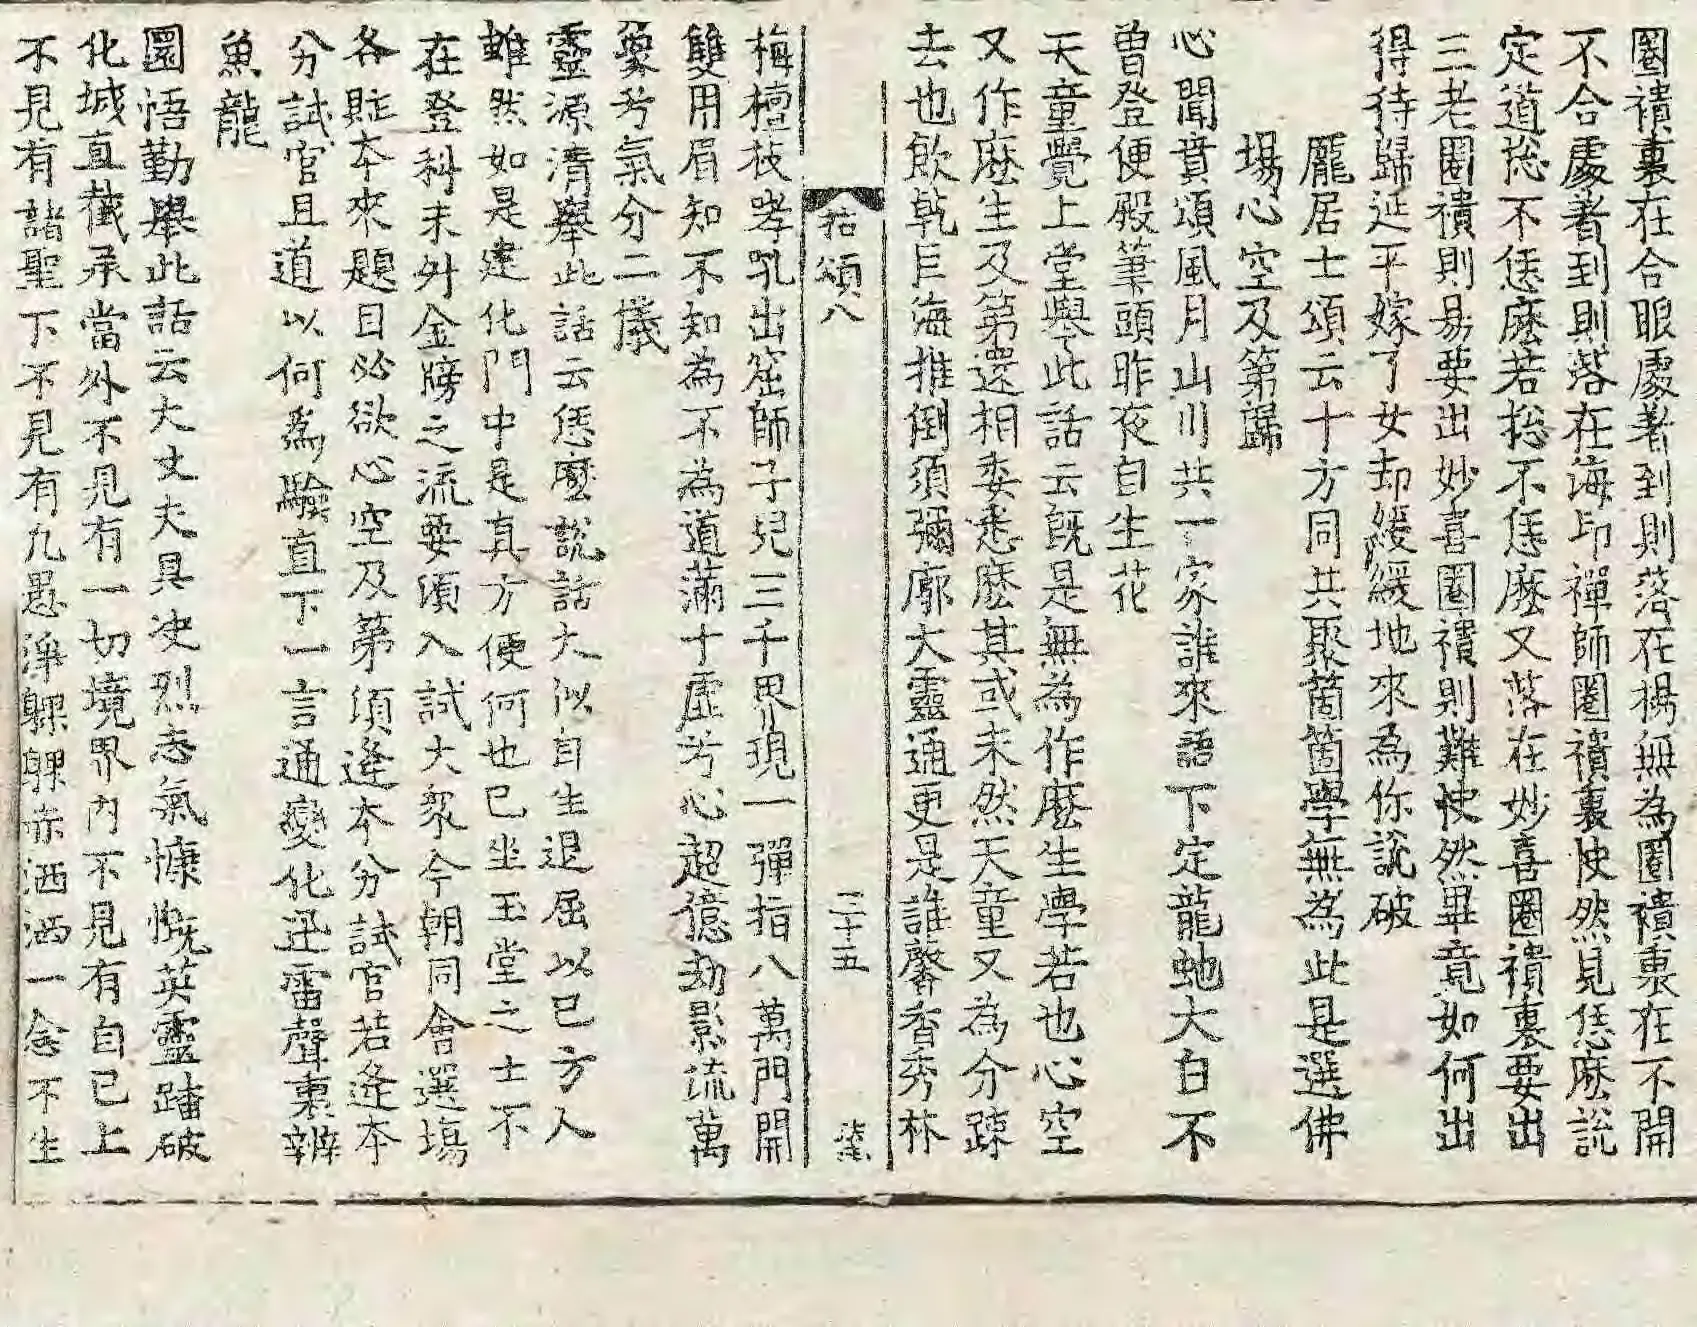 圈䙡裏在合眼處著到則落在楊無為圈䙡裏在不開
不合處著到則落在海印禪師圈䙡裏快然見恁麽說
定道揔不恁麽若揔不恁麽又落在妙喜圈䙡裏要出
三老圈䙡則易要出妙喜圈䙡則難快然畢竟如何出
得待歸延平嫁了女却緩緩地來為你說破
龐居士頌云十方同共聚箇箇學無為此是選佛
場心空及第歸
心聞賁頌風月山川共一家誰來語下定龍虵大白不
曾登便殿筆頭昨夜自生花
天童覺上堂舉此話云旣是無為作麽生學若也心空
又作麽生及第還相委悉麽其或未然天童又為分踈
去也飮乾巨海推倒須彌廓大靈通更是誰馨香秀林
拈頌八 三十五
栴檀枝哮吼出窟師子兒三千界現一彈指八萬門開
雙用眉知不知為不為道滿十虛兮心超億劫影流萬
象兮氣分二儀
靈源淸舉此話云恁麽說話大似自生退屈以已方人
雖然如是建化門中是真方便何也已坐玉堂之士不
在登科未外金牓之流要須入試大衆今朝同會選塲
各貶本來題目必欲心空及第須逢本分試官若逢本
分試官且道以何為驗直下一言通變化迅雷聲裏辨
魚龍
圜悟勤舉此話云大丈夫具决烈志氣慷慨英靈踏破
化城直截承當外不見有一切境界內不見有自己上
不見有諸聖下不見有凡愚淨躶躶赤洒洒一念不生